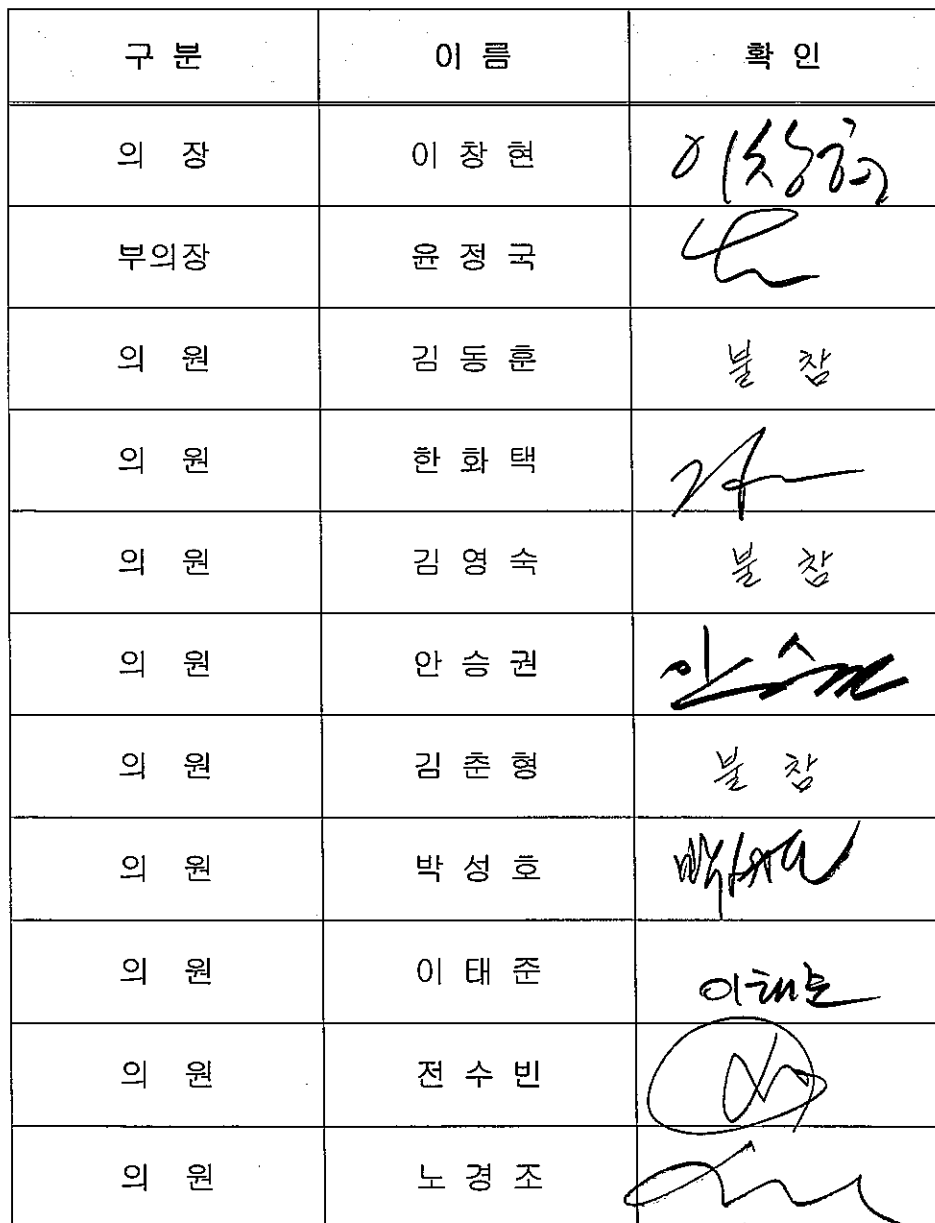 구 분 이 름 확 인
의 장 이 창 현 이창현
부의장 윤 정 국
의 원 김 동 훈 불 참
의 원 한 화 택
의 원 김 영 숙 불 참
의 원 안 승 권
의 원 김 춘 형 불 참
의 원 박 성 호
의 원 이 태 준 이태준
의 원 전 수 빈
의 원 노 경 조